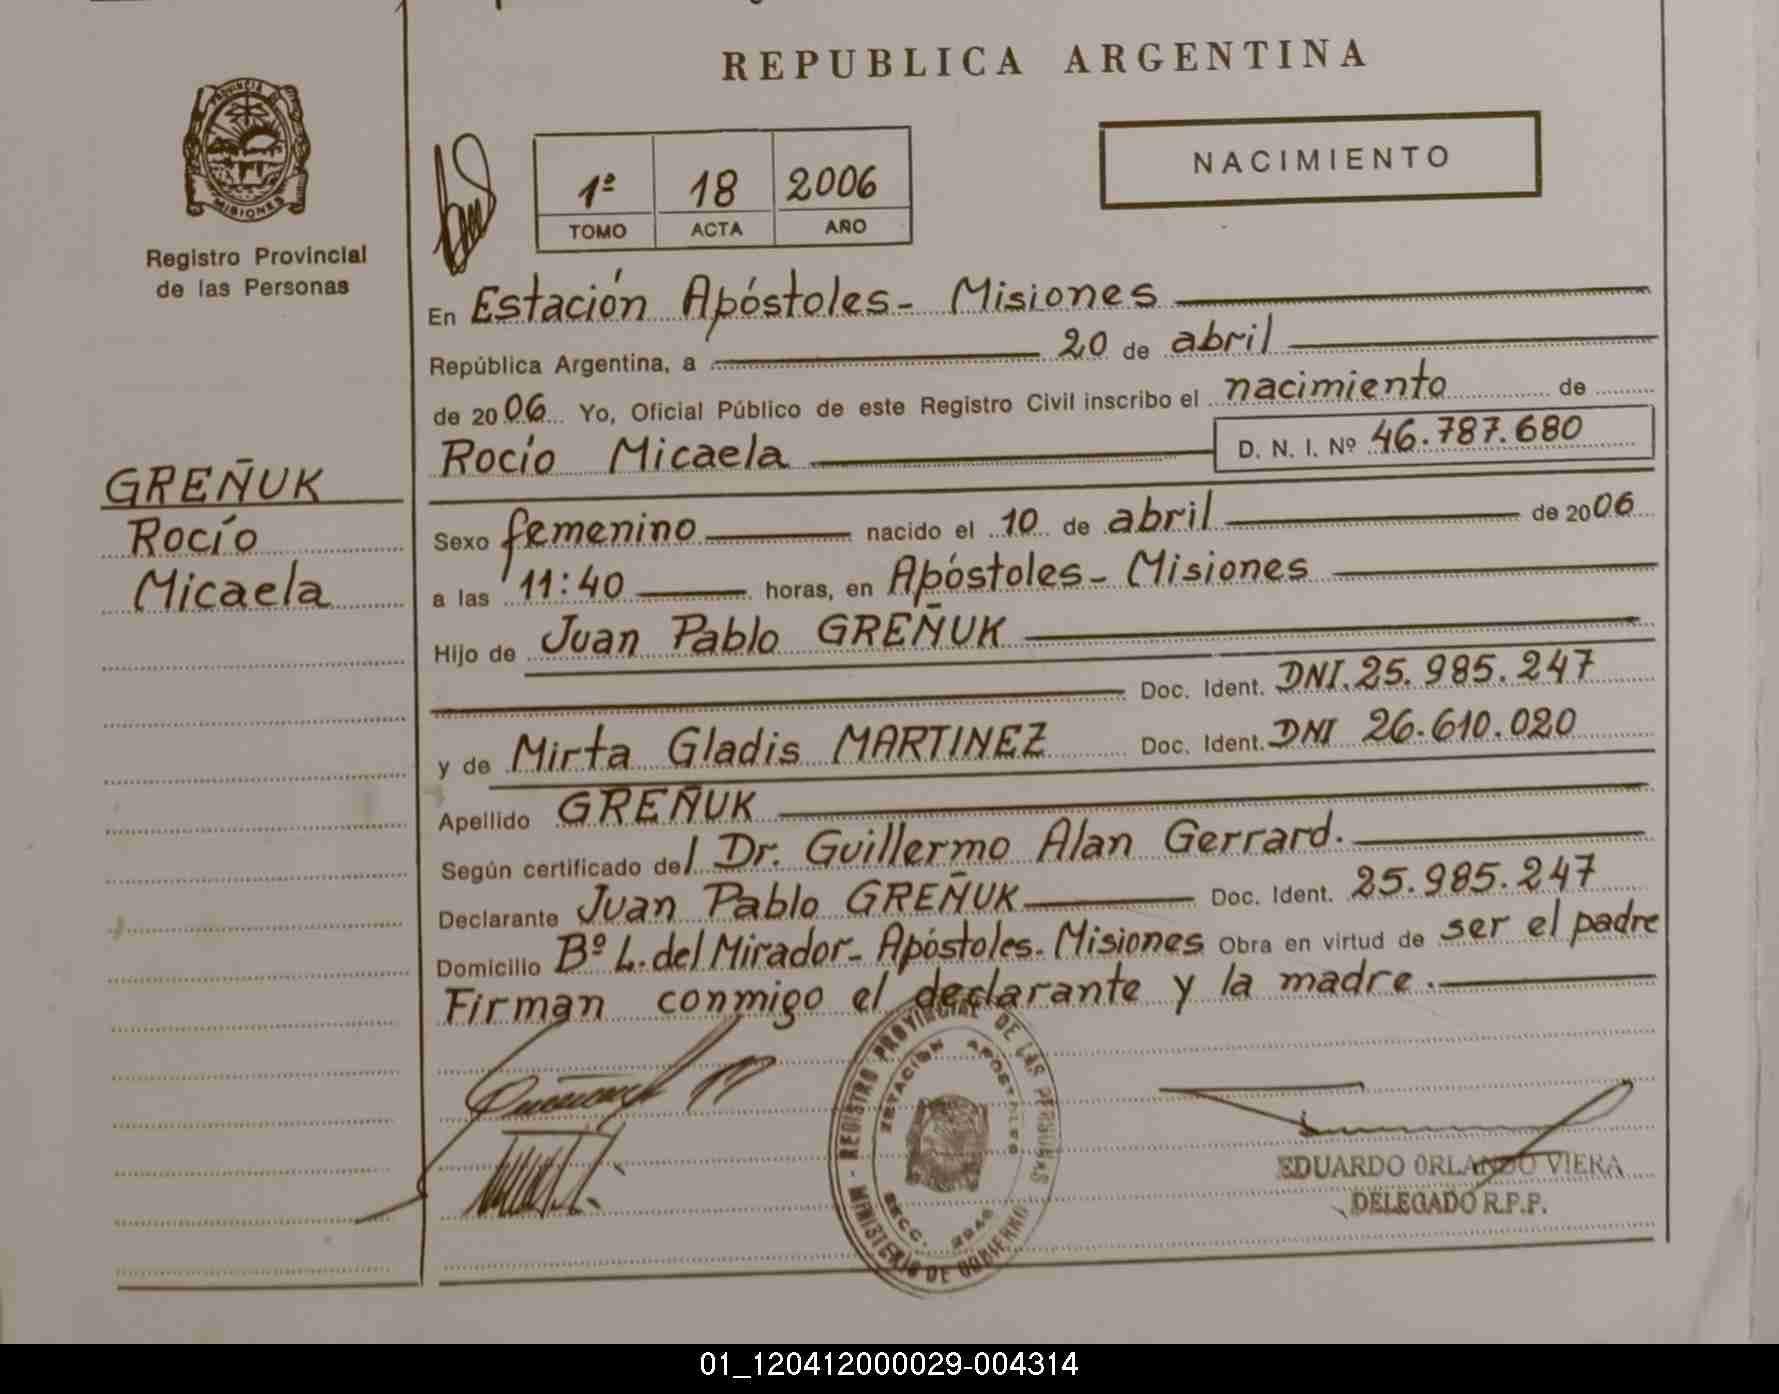 REPUBLICA ARGENTINA
PROVINCIA DE
MISIONES
Registro Provincial
de las Personas
1º 18 2006
TOMO ACTA AÑO
NACIMIENTO
En Estación Apóstoles - Misiones
República Argentina, a 20 de abril
de 2006 Yo, Oficial Público de este Registro Civil inscribo el nacimiento de
Rocío Micaela D. N. I. Nº 46.787.680
GREÑUK
Rocío
Micaela
Sexo femenino nacido el 10 de abril de 2006
a las 11:40 horas, en Apóstoles - Misiones
Hijo de Juan Pablo GREÑUK
Doc. Ident. DNI. 25.985.247
y de Mirta Gladis MARTINEZ Doc. Ident. DNI 26.610.020
Apellido GREÑUK
Según certificado del Dr. Guillermo Alan Gerrard.
Declarante Juan Pablo GREÑUK Doc. Ident. 25.985.247
Domicilio Bº L. del Mirador - Apóstoles - Misiones Obra en virtud de ser el padre
Firman conmigo el declarante y la madre.
REGISTRO PROVINCIAL DE LAS PERSONAS
ESTACION APOSTOLES
SECC.
- MINISTERIO DE GOBIERNO
EDUARDO ORLANDO VIERA
DELEGADO R.P.P.
01_120412000029-004314